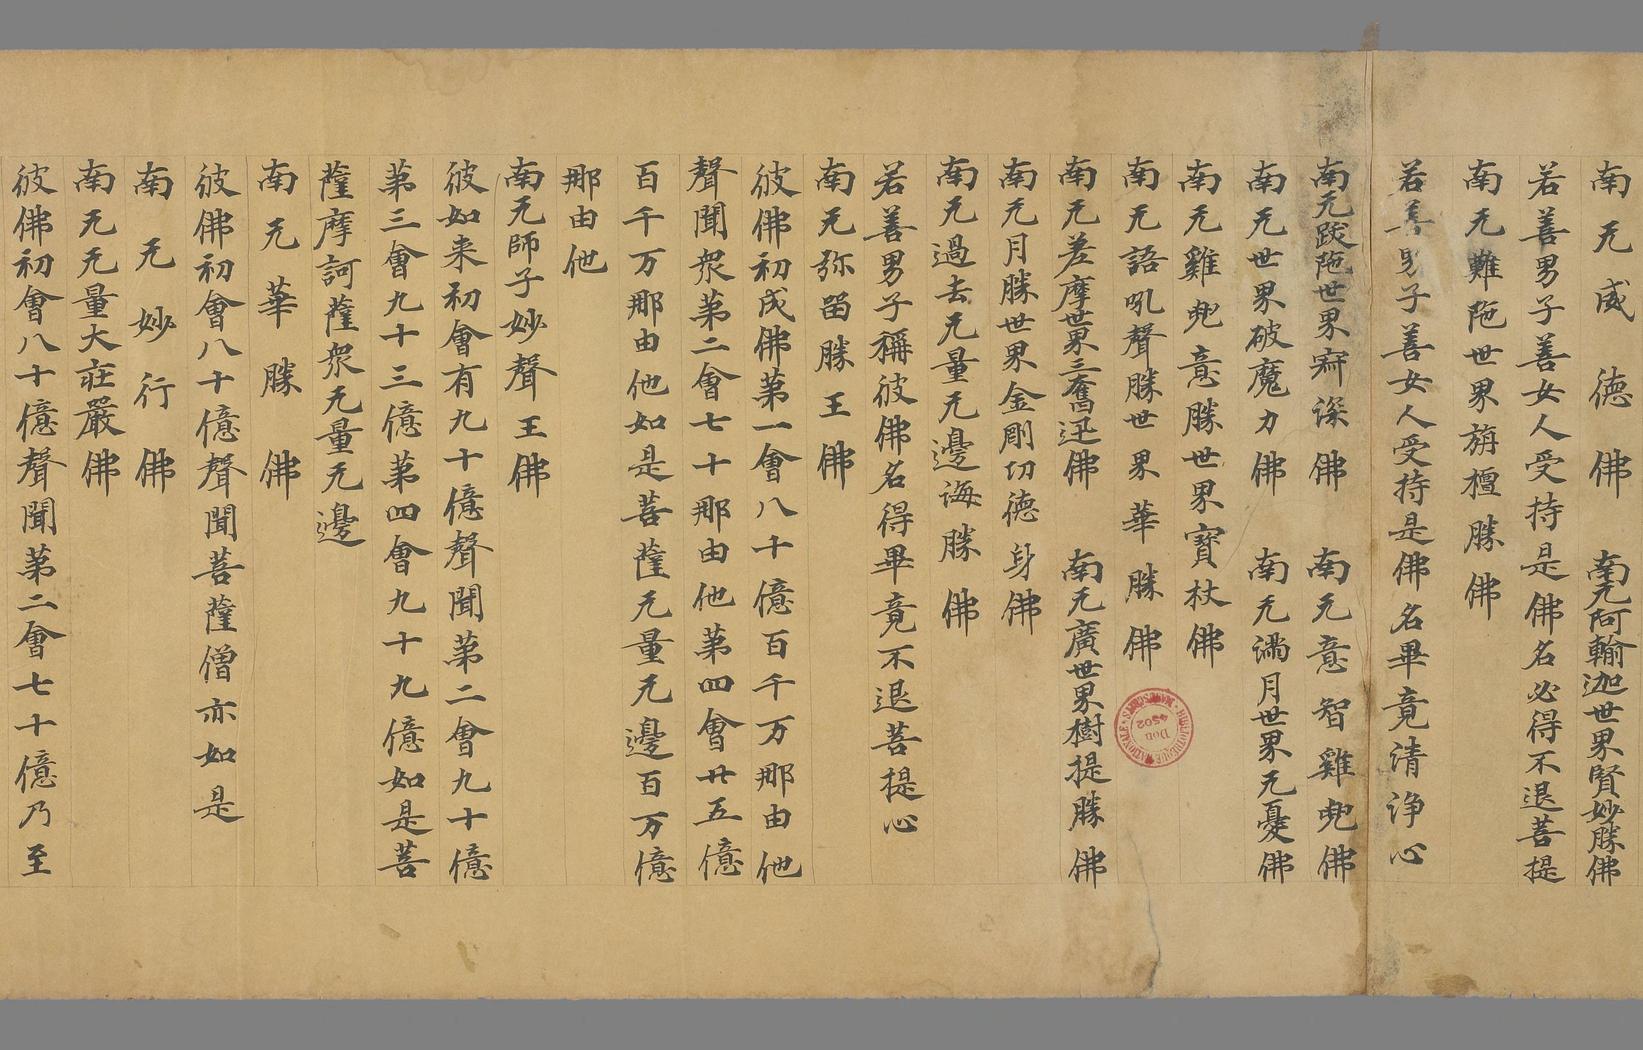 南无威德佛 南无阿輸迦世界賢妙勝佛
若善男子善女人受持是佛名必得不退菩提
南无難陁世界旃檀勝佛
若善男子善女人受持是佛名畢竟清淨心
南无跋陁世界寂深佛 南无意智雞兜佛
南无世界破魔力佛 南无滿月世界无憂佛
南无雞兜意勝世界寶杖佛
南无語吼聲勝世界華勝佛
南无差摩世界三奮迅佛 南无廣世界樹提勝佛
南无月勝世界金剛功德身佛
南无過去无量无邊海勝佛
若善男子稱彼佛名得畢竟不退菩提心
南无弥留勝王佛
彼佛初成佛第一會八十億百千万那由他
聲聞衆第二會七十那由他第四會廿五億
百千万那由他如是菩薩无量无邊百万億
那由他
南无師子妙聲王佛
彼如来初會有九十億聲聞第二會九十億
第三會九十三億第四會九十九億如是菩
薩摩訶薩衆无量无邊
南无華勝佛
彼佛初會八十億聲聞菩薩僧亦如是
南无妙行佛
南无无量大莊嚴佛
彼佛初會八十億聲聞第二會七十億乃至
BIBLIOTHEQUE NATIONALE MANUSCRITS
Don
4502